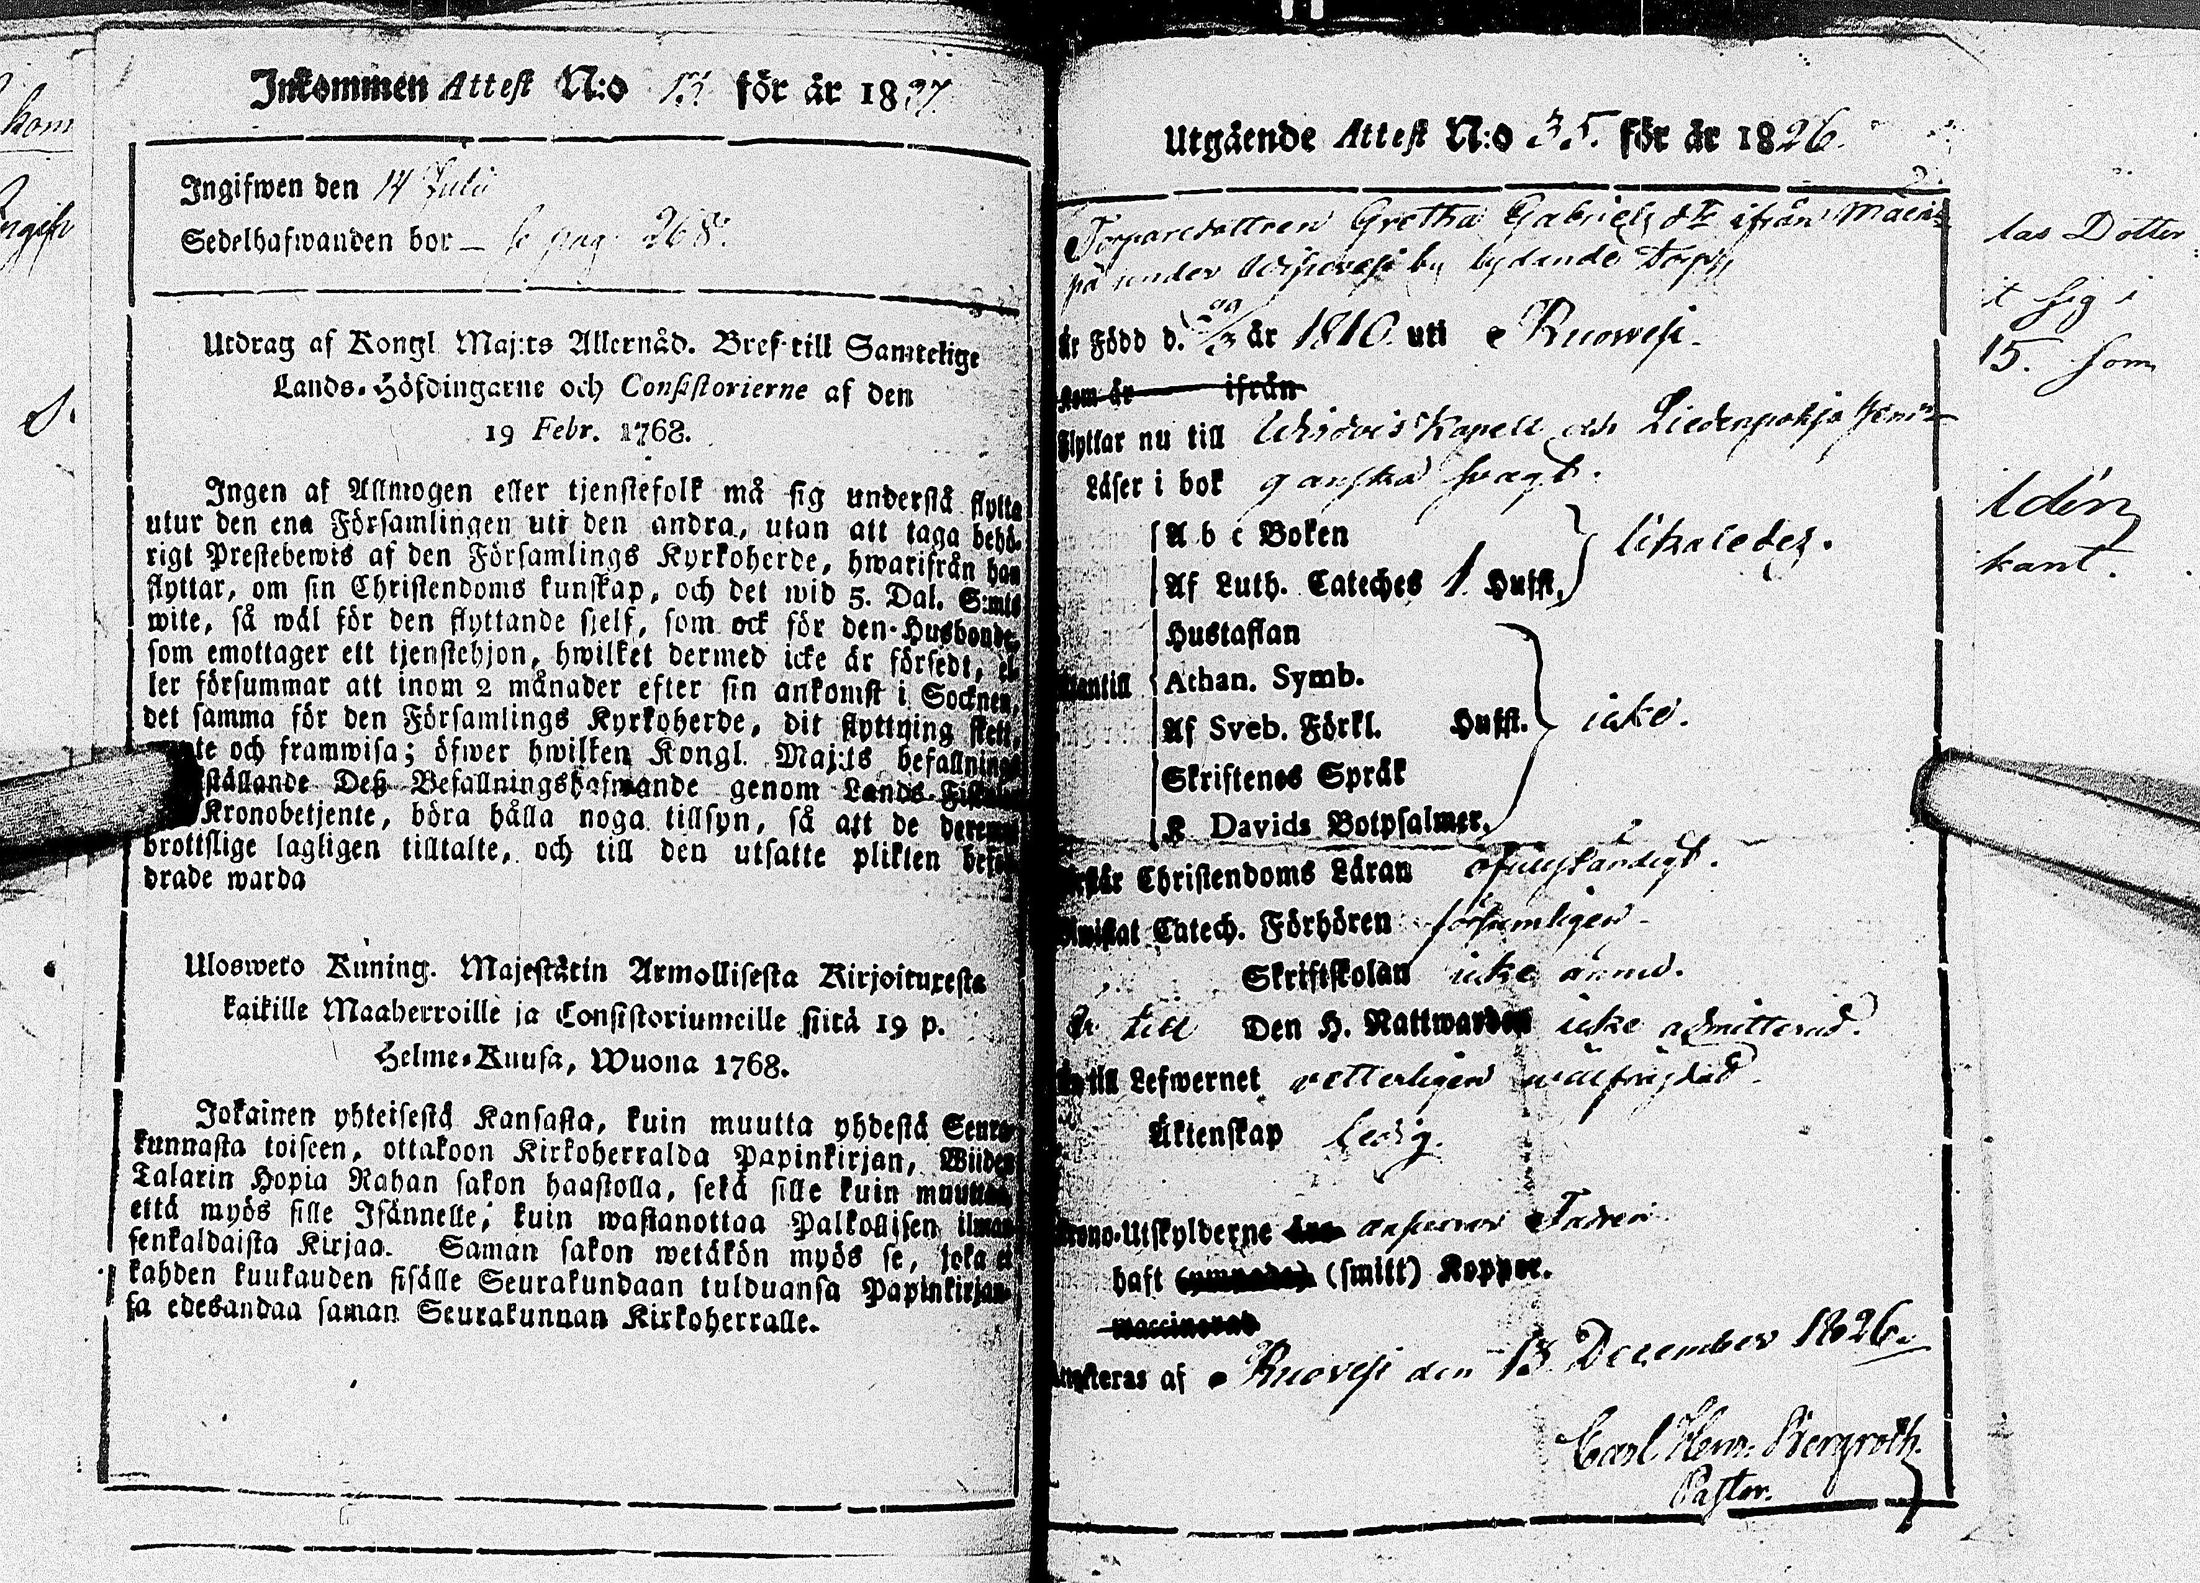 Inkommen Attest N:o 13 för år 1827
Ingifwen den 14 Julii
Sedelhafwanden bor — se pag. 268.
Utdrag af Kongl Maj:ts Allernåd. Bref till Samtelige
Lands-Höfdingarne och Consistorierne af den
19 Febr. 1768.
Ingen af Allmogen eller tjenstefolk må sig understå flytta
utur den ena Församlingen uti den andra, utan att taga behö-
rigt Prestebewis af den Församlings Kyrkoherde, hwarifrån han
flyttar, om sin Christendoms kunskap, och det wid 5. Dal. S:mts
wite, så wäl för den flyttande sjelf, som ock för den Husbonde,
som emottager ett tjenstehjon, hwilket dermed icke är försedt, el-
ler försummar att inom 2 månader efter sin ankomst i Socknen,
det samma för den Församlings Kyrkoherde, dit flyttning skett,
te och framwisa; öfwer hwilken Kongl. Maj:ts befallning
ställande Deß Befallningshafwande genom Lands-Fiskaler
Kronobetjente, böra hålla noga tillsyn, så att de deremot
brottslige lagligen tilltalte, och till den utsatte plikten befor-
drade warda
Ulosweto Kuning. Majestätin Armollisesta Kirjoituxesta
kaikille Maaherroille ja Consistoriumeille siitä 19 p.
Helme-Kuusa, Wuona 1768.
Jokainen yhteisestä Kansasta, kuin muutta yhdestä Seura-
kunnasta toiseen, ottakoon Kirkoherralda Papinkirjan, Wiiden
Talarin Hopia Rahan sakon haastolla, sekä sille kuin muuttaa,
että myös sille Isännelle, kuin wastanottaa Palkollisen ilman
senkaldaista Kirjaa. Saman sakon wetäkön myös se, joka ei
kahden kuukauden sisälle Seurakundaan tulduansa Papinkirjan-
sa edesandaa saman Seurakunnan Kirkoherralle.
Utgående Attest N:o 35. för år 1826.
Torparedottren Gretha Gabriels dr ifrån
på under by lydande Torp
Är Född d. 20/3 år 1810 uti Ruowesi.
kom år ifrån
Flyttar nu till Wirdois Kapell och Liedenpohja
Läser i bok ganska svagt.
A b c Boken
Af Luth. Cateches 1 Hufst. likaledes.
Hustaflan
Utantill Athan. Symb.
Af Sveb. Förkl. Hufst. icke.
Skriftenes Språk
K. Davids Botpsalmer.
Förstår Christendoms Läran ofullständigt.
Bewistat Catech. Förhören försumligen
Skriftskolan icke ännu.
Är till Den H. Nattwarden icke admitterad.
Är till Lefwernet vetterligen wälfrejdad.
Äktenskap ledig.
Krono-Utskylderne answarar Fadren
haft (ympade) (smitt) Koppor.
waccinerad
Attesteras af Ruovesi den 13 December 1826.
Carl Henr. Bergroth.
Pastor.
las Dotter
t sig i
15. som
kant.